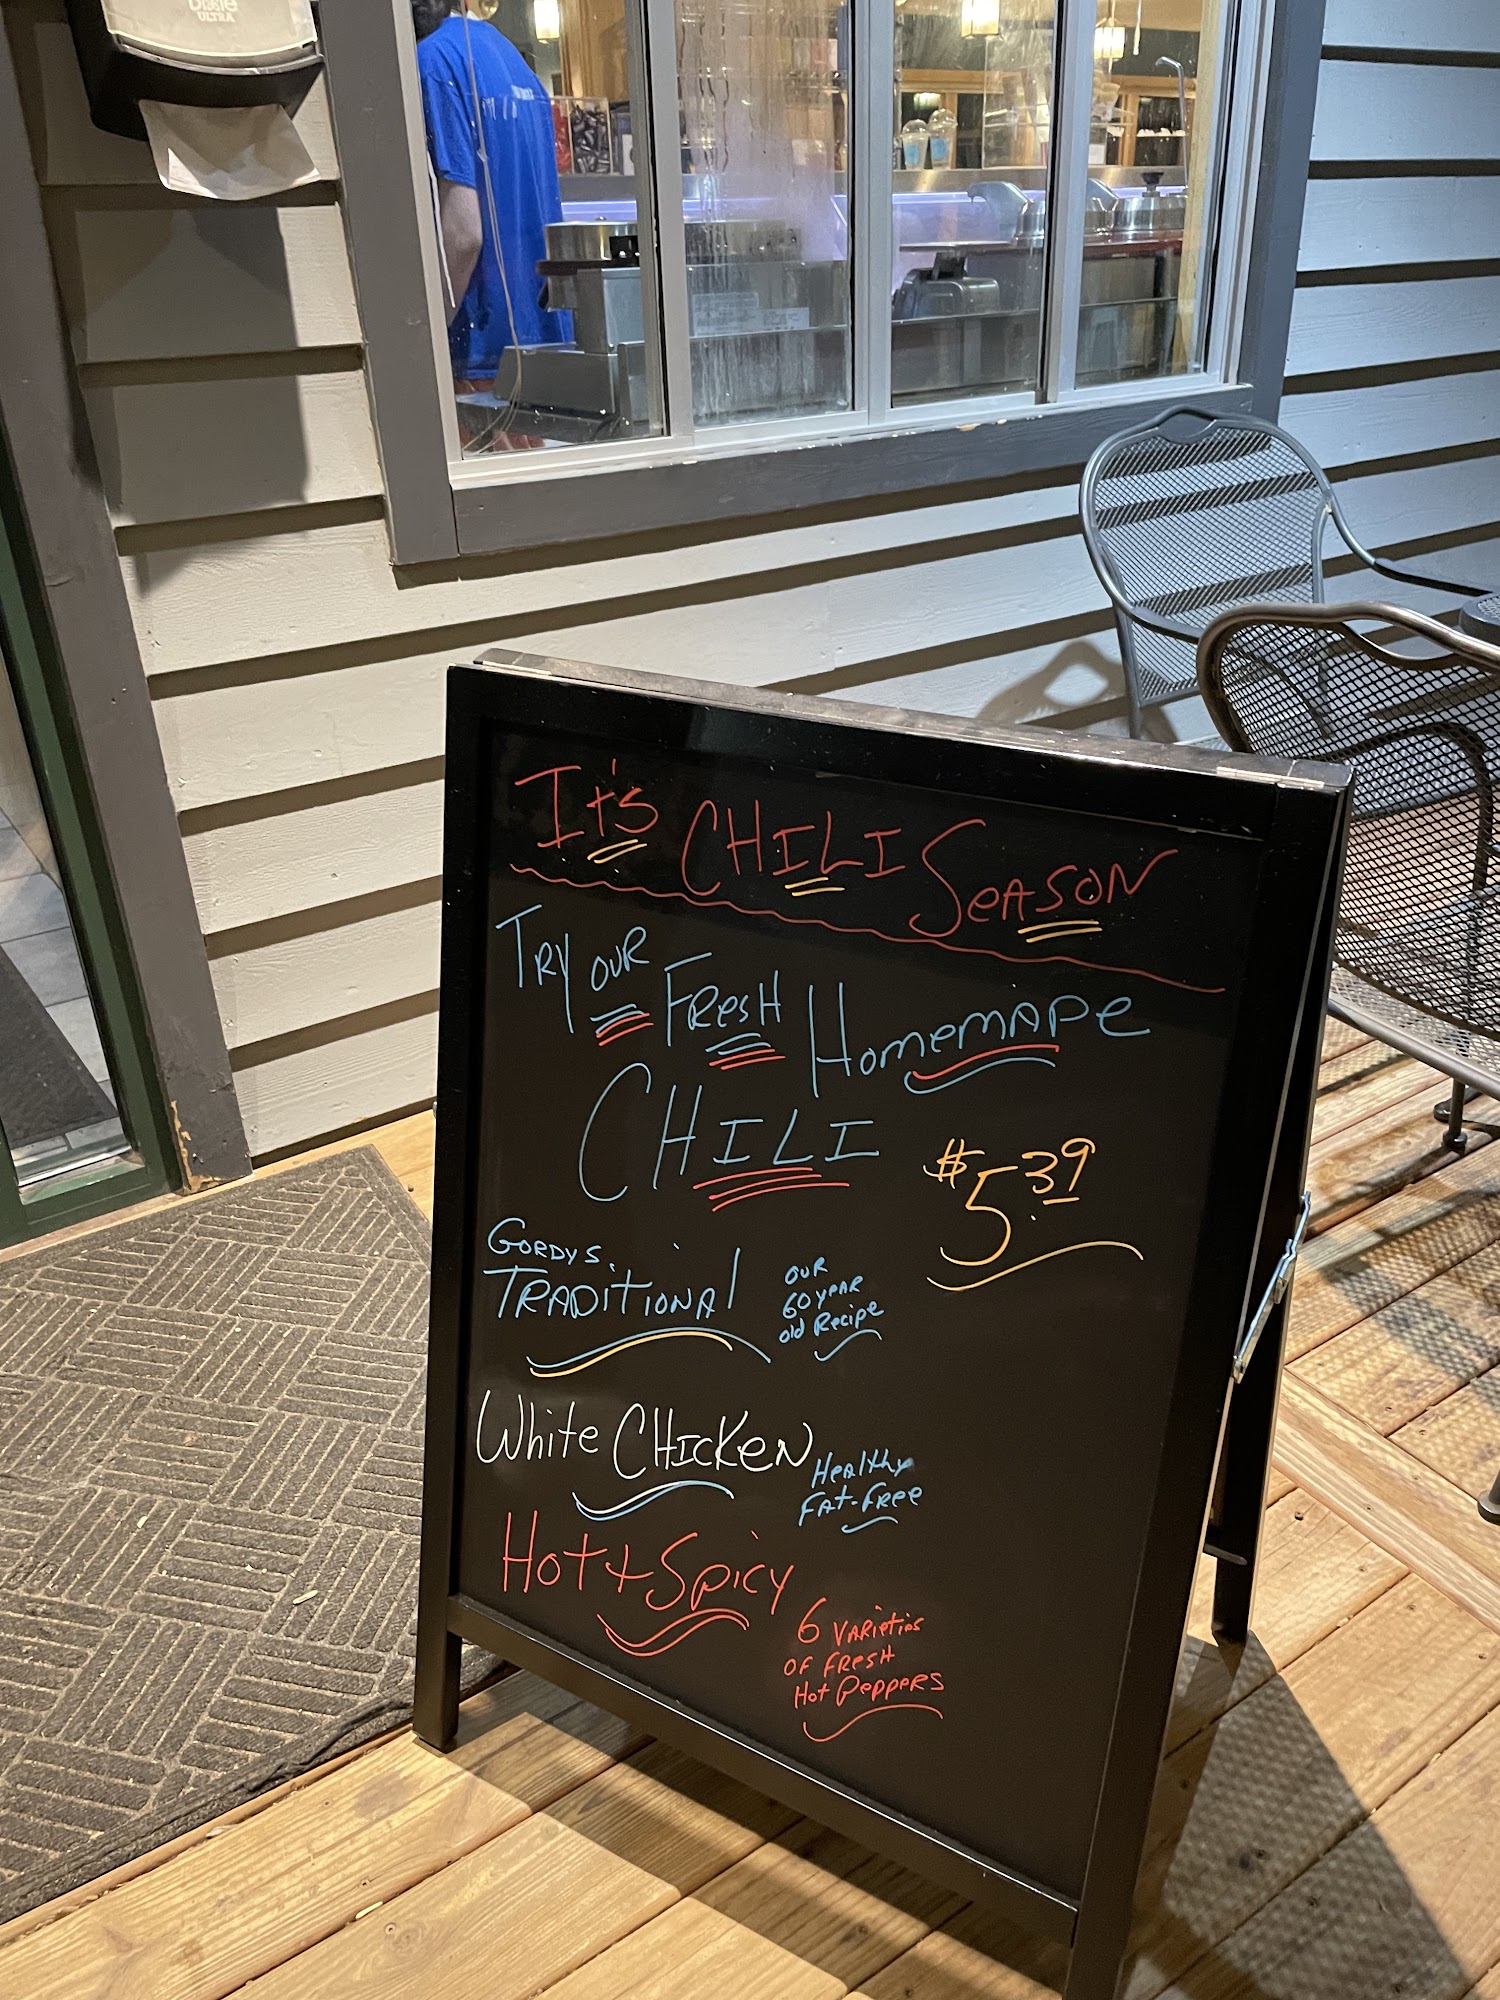 Dixie
ULTRA
It's CHILI SeASON
TRY OUR FResH HomemADe
CHILI
$5.39
GORDYS.
TRADITIONAl
OUR
60 yeAR
old Recipe
White CHICKeN
HeAlthy
FAt-FRee
Hot + Spicy
6 VARieties
OF FResH
Hot PeppeRS